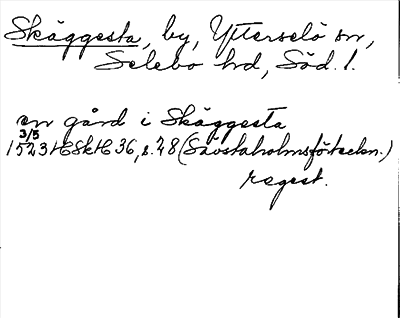 Skäggesta, by, Ytterselö sn,
Selebo hd, Söd. l.
en gård i Skäggesta
3/5
1523 HSkH 36, s. 28 (Sävstaholmsförteckn.)
regest.